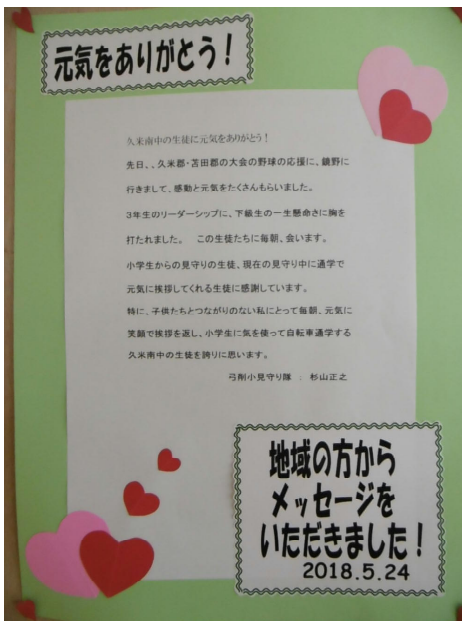 元気をありがとう！
久米南中の生徒に元気をありがとう！
先日、、久米郡・苫田郡の大会の野球の応援に、鏡野に
行きまして、感動と元気をたくさんもらいました。
３年生のリーダーシップに、下級生の一生懸命さに胸を
打たれました。　この生徒たちに毎朝、会います。
小学生からの見守りの生徒、現在の見守り中に通学で
元気に挨拶してくれる生徒に感謝しています。
特に、子供たちとつながりのない私にとって毎朝、元気に
笑顔で挨拶を返し、小学生に気を使って自転車通学する
久米南中の生徒を誇りに思います。
弓削小見守り隊　：　杉山正之
地域の方から
メッセージを
いただきました！
2018.5.24